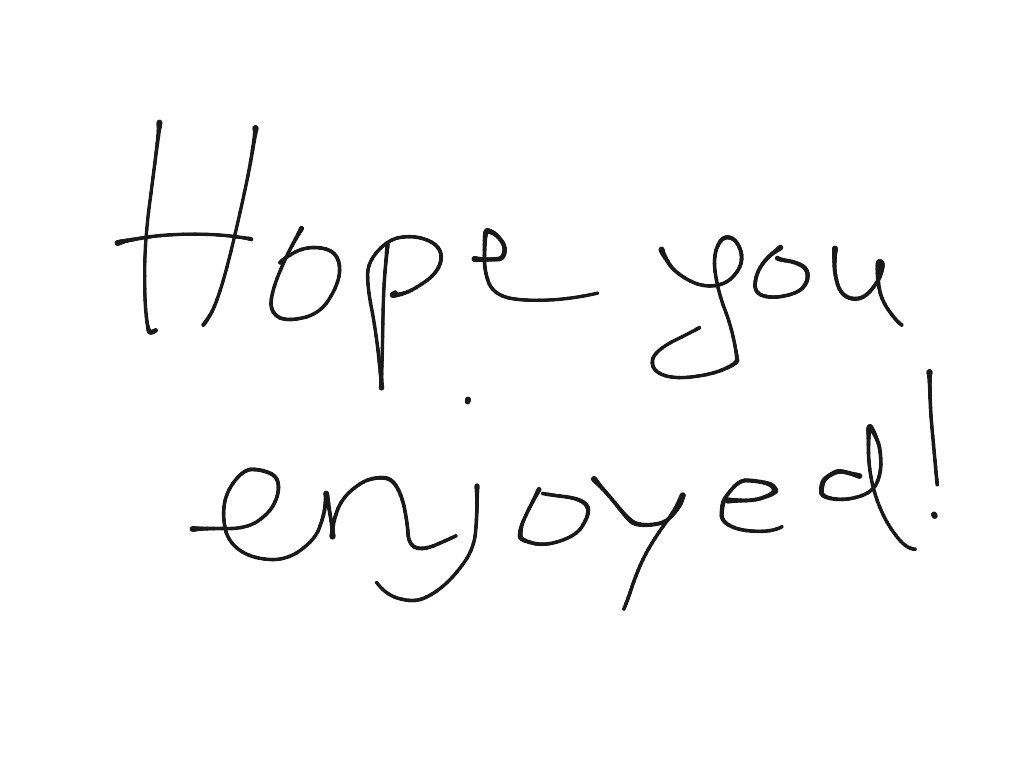 Hope you
enjoyed!